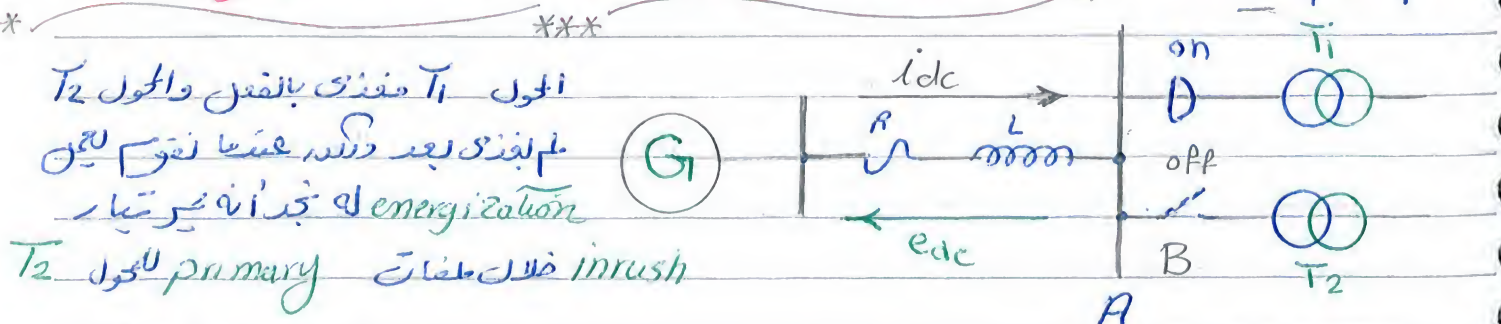 * ***
المحول T1 مغذى بالفعل والمحول T2
لم يغذى بعد ولكن عندما نقوم بعمل
energization له نجد أنه يمر تيار
inrush خلال ملفات primary للمحول T2
idc
R L
G
edc
on T1
off
B T2
A